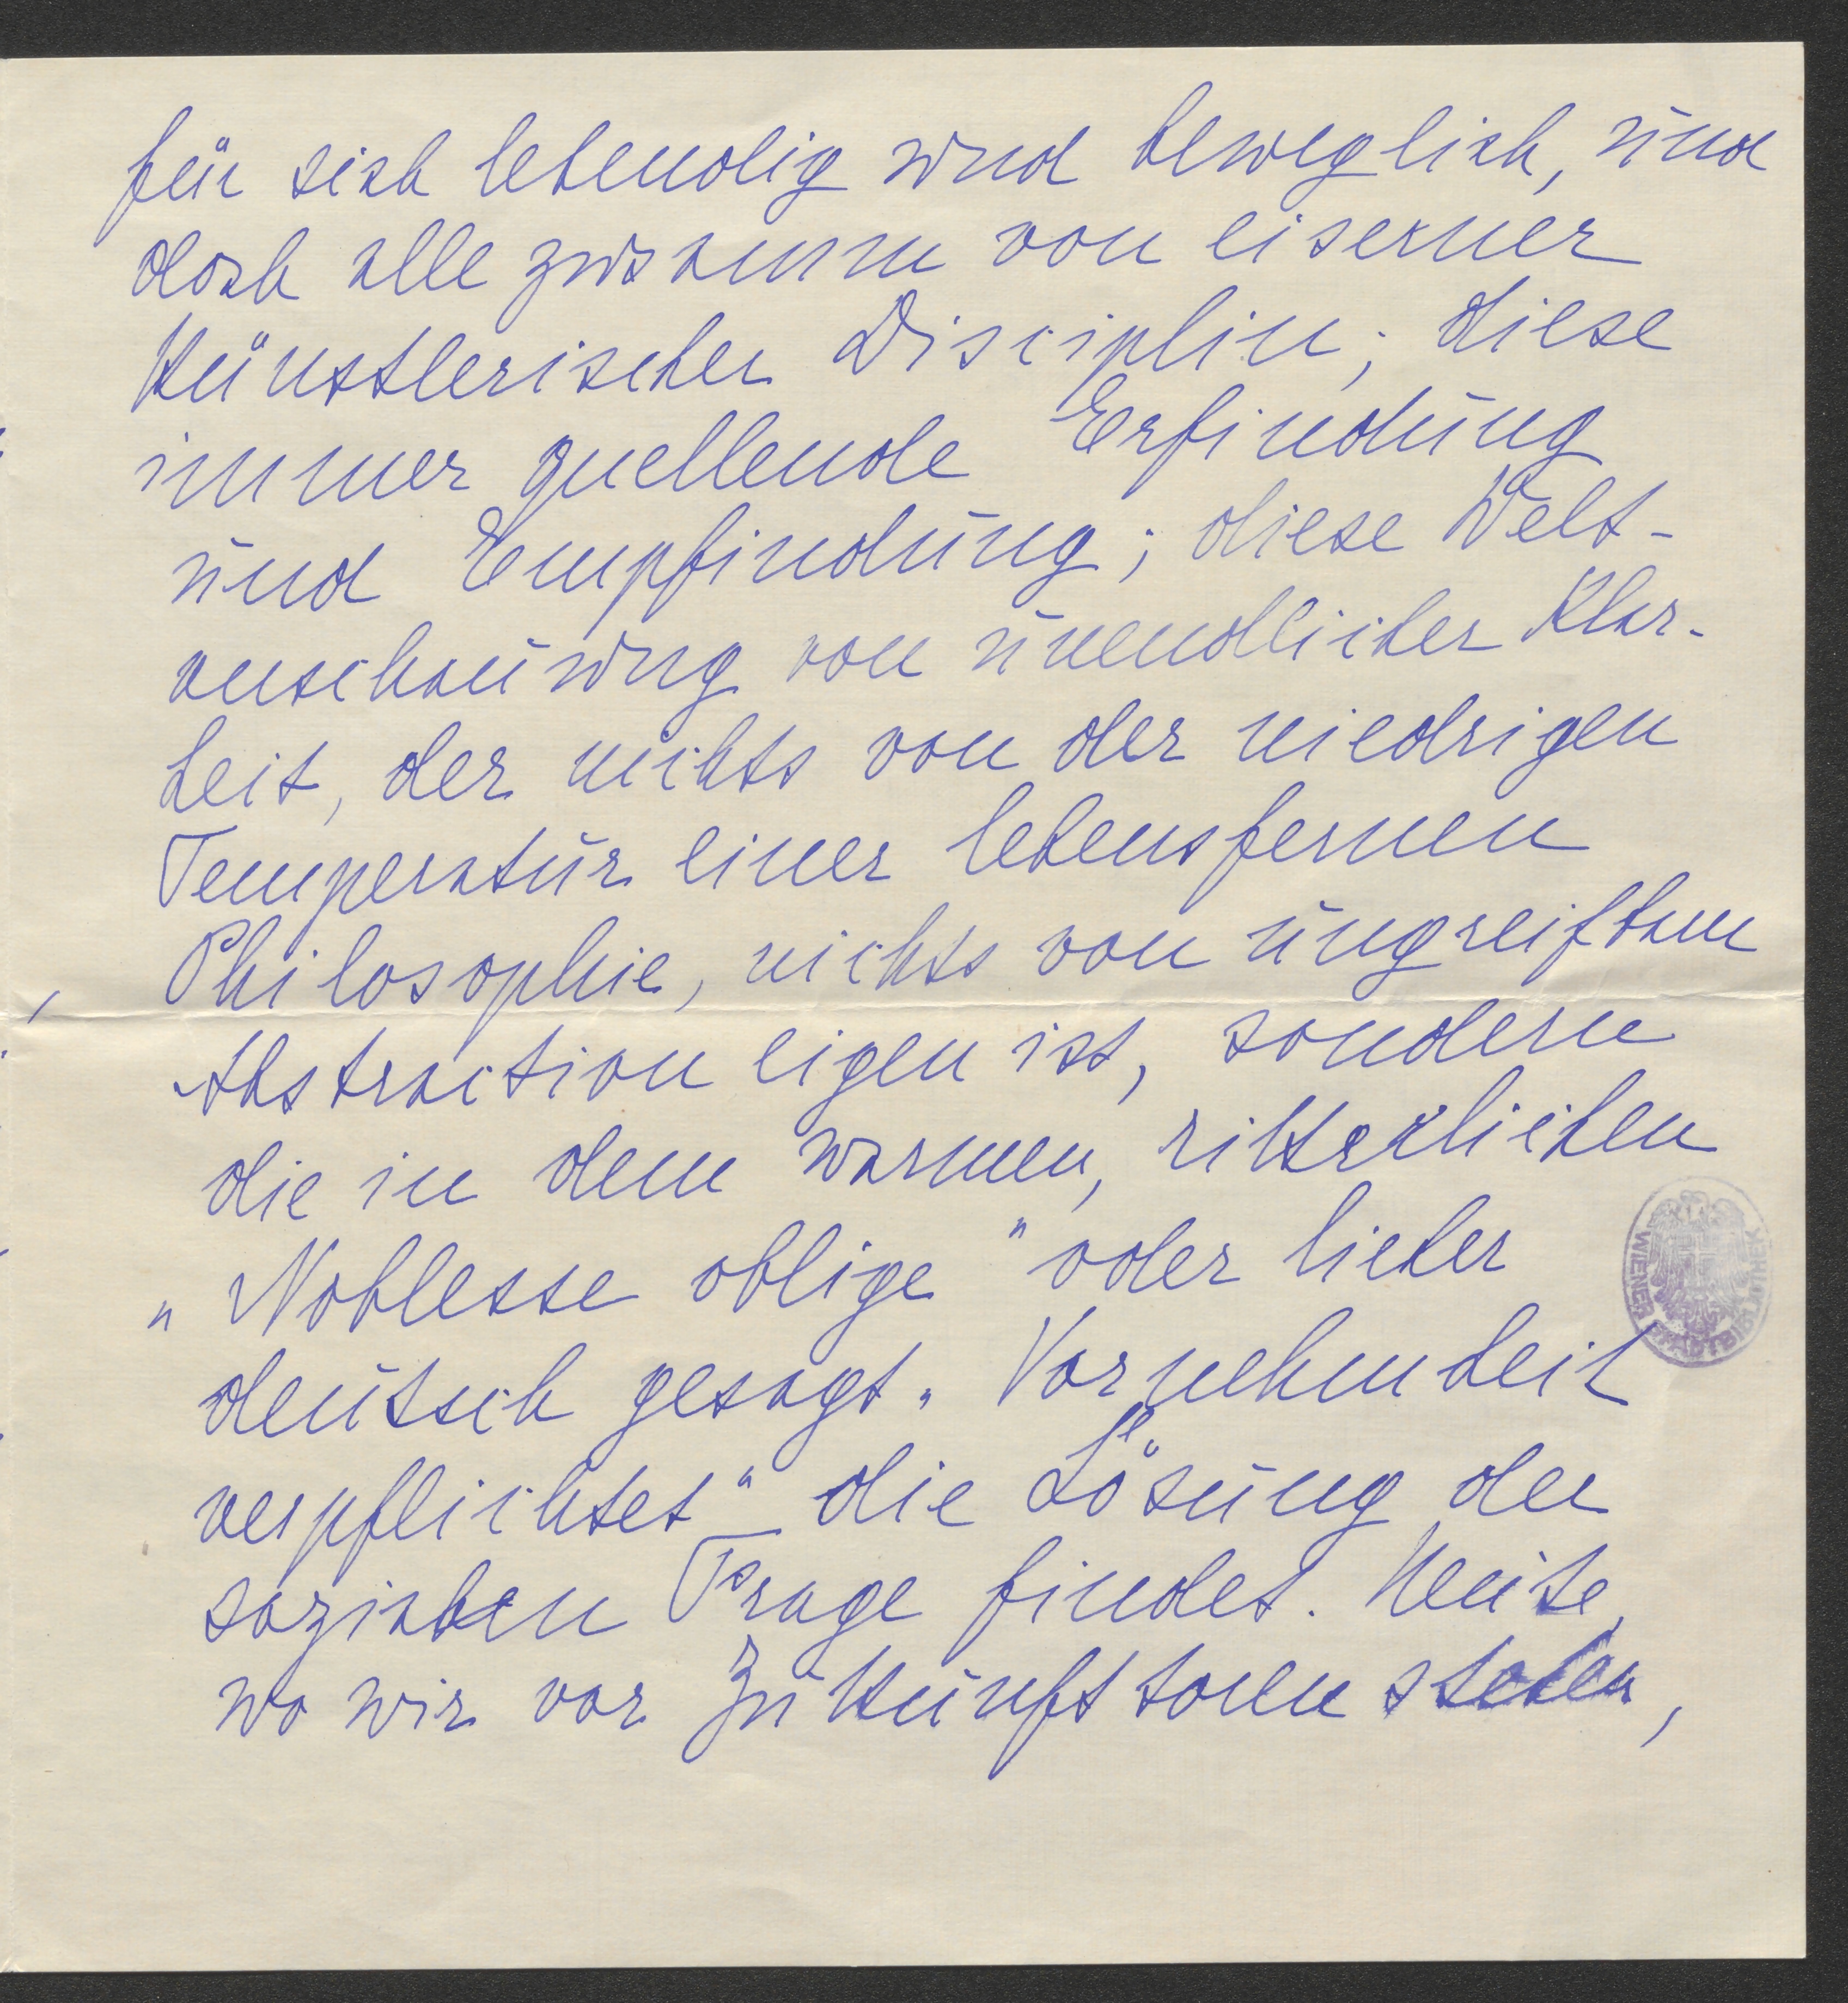 für sich lebendig und beweglich, und
doch alle zusammen von eiserner
künstlerischer Disciplin; diese
immer quellende Erfindung
und Empfindung; diese Welt-
anschauung von unendlicher Klar-
heit, der nichts von der niedrigen
Temperatur einer lebensfernen
Philosophie, nichts von ungreifbarer
Abstraction eigen ist, sondern
die in dem warmen, ritterlichen
„Noblesse oblige" oder lieber
deutsch gesagt „Vornehmheit
verpflichtet" die Lösung der
sozialen Frage findet. Heute,
wo wir vor Zukunftstoren stehen,
WIENER STADTBIBLIOTHEK